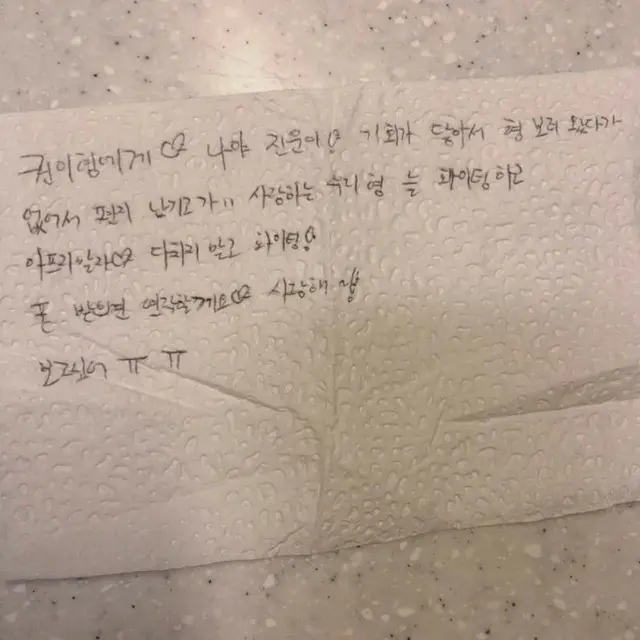 권이형에게♡ 나야 진운이♡ 기회가 닿아서 형 보러 왔다가
없어서 편지 남기고가!! 사랑하는 우리형 늘 화이팅하고
아프지말라♡ 다치지말고 화이팅♡
폰 받으면 연락할게요♡ 사랑해
보고싶어 ㅠㅠ